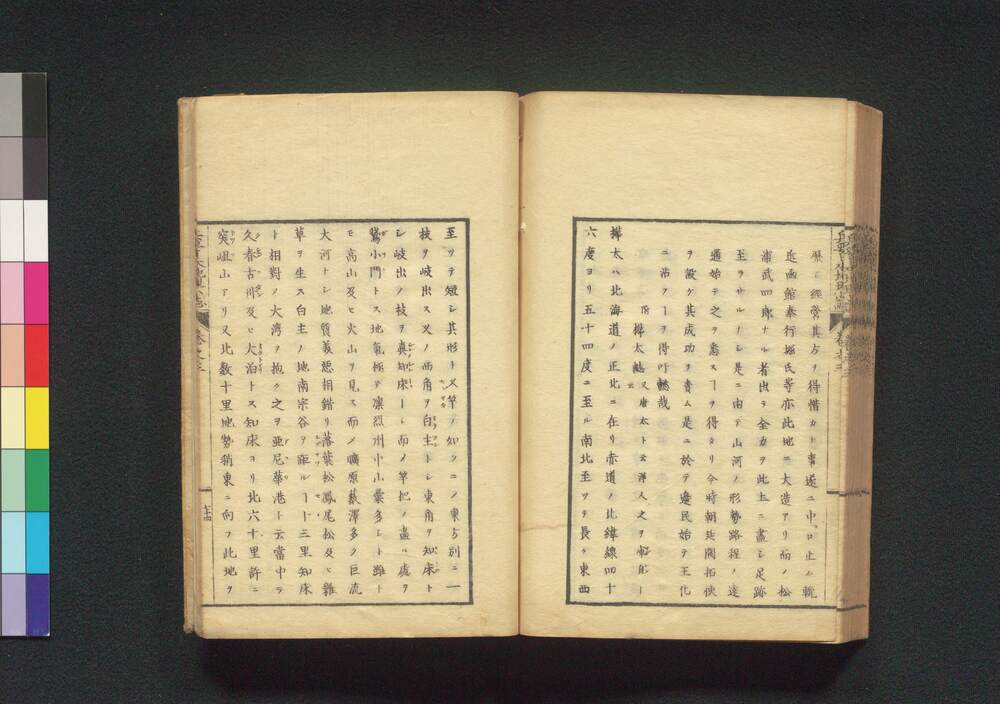 歴ニ經營其方ヲ得惜カナ事遂ニ中口止ム輓
近函館奉行堀氏等亦此地ニ大造アリ而ノ松
浦武四郎ナル者出テ全力ヲ此土ニ盡シ足跡
至ラサルーシ是ニ由テ山河ノ形勢路程ノ遠
邇始テ之ヲ悉スーヲ得タリ今時朝廷開拓使
ヲ設ケ其成功ヲ責ム是ニ於テ邊民始テ王化
ニ沾フーヲ得吁懿哉
樺太
樺太ハ北海道ノ正北ニ在リ赤道ノ北緯線四十
六度ヨリ五十四度ニ至ル南北至ヲ長ク東西
至リテ短シ其形ト叉竿ノ如クニノ東方別ニ一
枝ヲ岐出ス叉ノ西角ヲ白主トシ東角ヲ知床ト
シ岐出ノ枝ヲ眞知床ートシ而ノ竿把ノ盡ル處ヲ
鵞小門トス地氣極テ凛烈州中山彙多シト雖ト
モ高山及ヒ火山ヲ見ス而ノ曠原藪澤多ク巨流
大河トシ地質美惡相錯リ落葉松鳳尾松及ヒ雜
草ヲ生ス白主ノ地南宗谷ヲ距ルー十三里知床
ト相對ノ大湾ヲ抱ク之ヲ亜尼華港ト云當中ヲ
久春古川及ヒ大泊トス知床ヨリ北六十里許ニ
突岨山アリ又北数十里地勢稍東ニ向フ此地ヲ